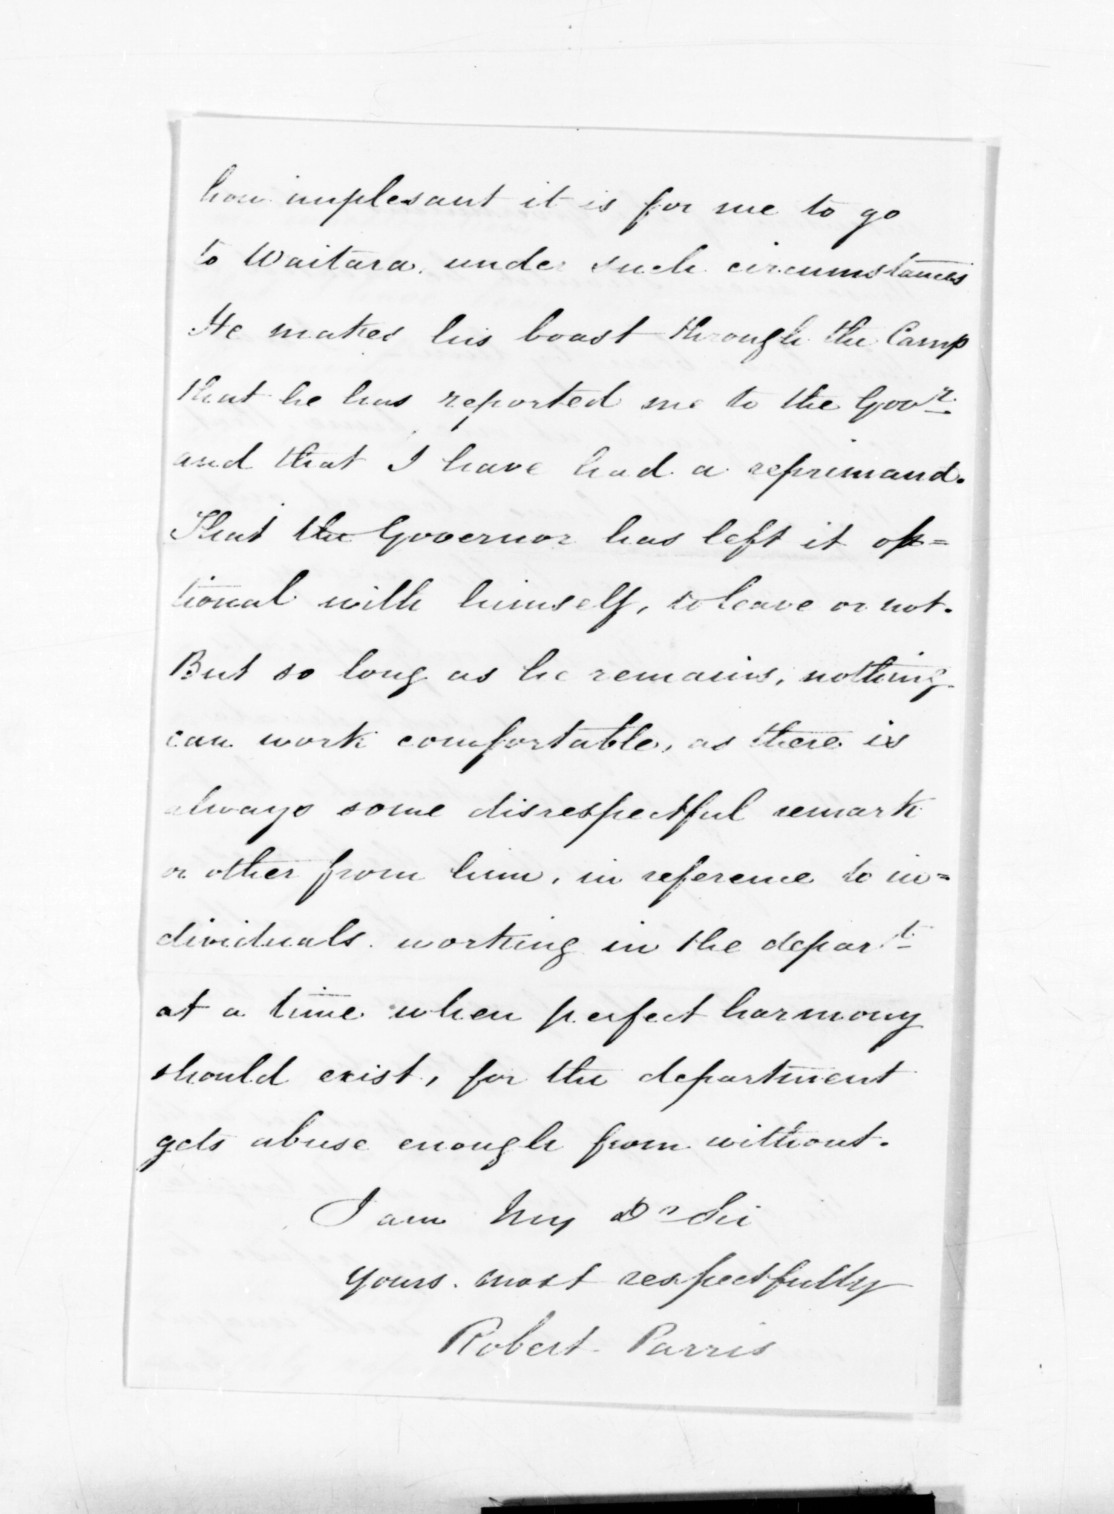 how unplesant it is for me to go
to Waitara, under such circumstances
He makes his boast through the Camp
that he has reported me to the Govr.
and that I have had a reprimand.
That the Governor has left it op=
tional with himself, to leave or not.
But so long as he remains, nothing
can work comfortable, as there is
always some disrespectful remark
or other from him, in reference to in=
dividuals working in the depart.
at a time when perfect harmony
should exist, for the department
gets abuse enough from without.
I am My Dr Sir
yours most respectfully
Robert Parris